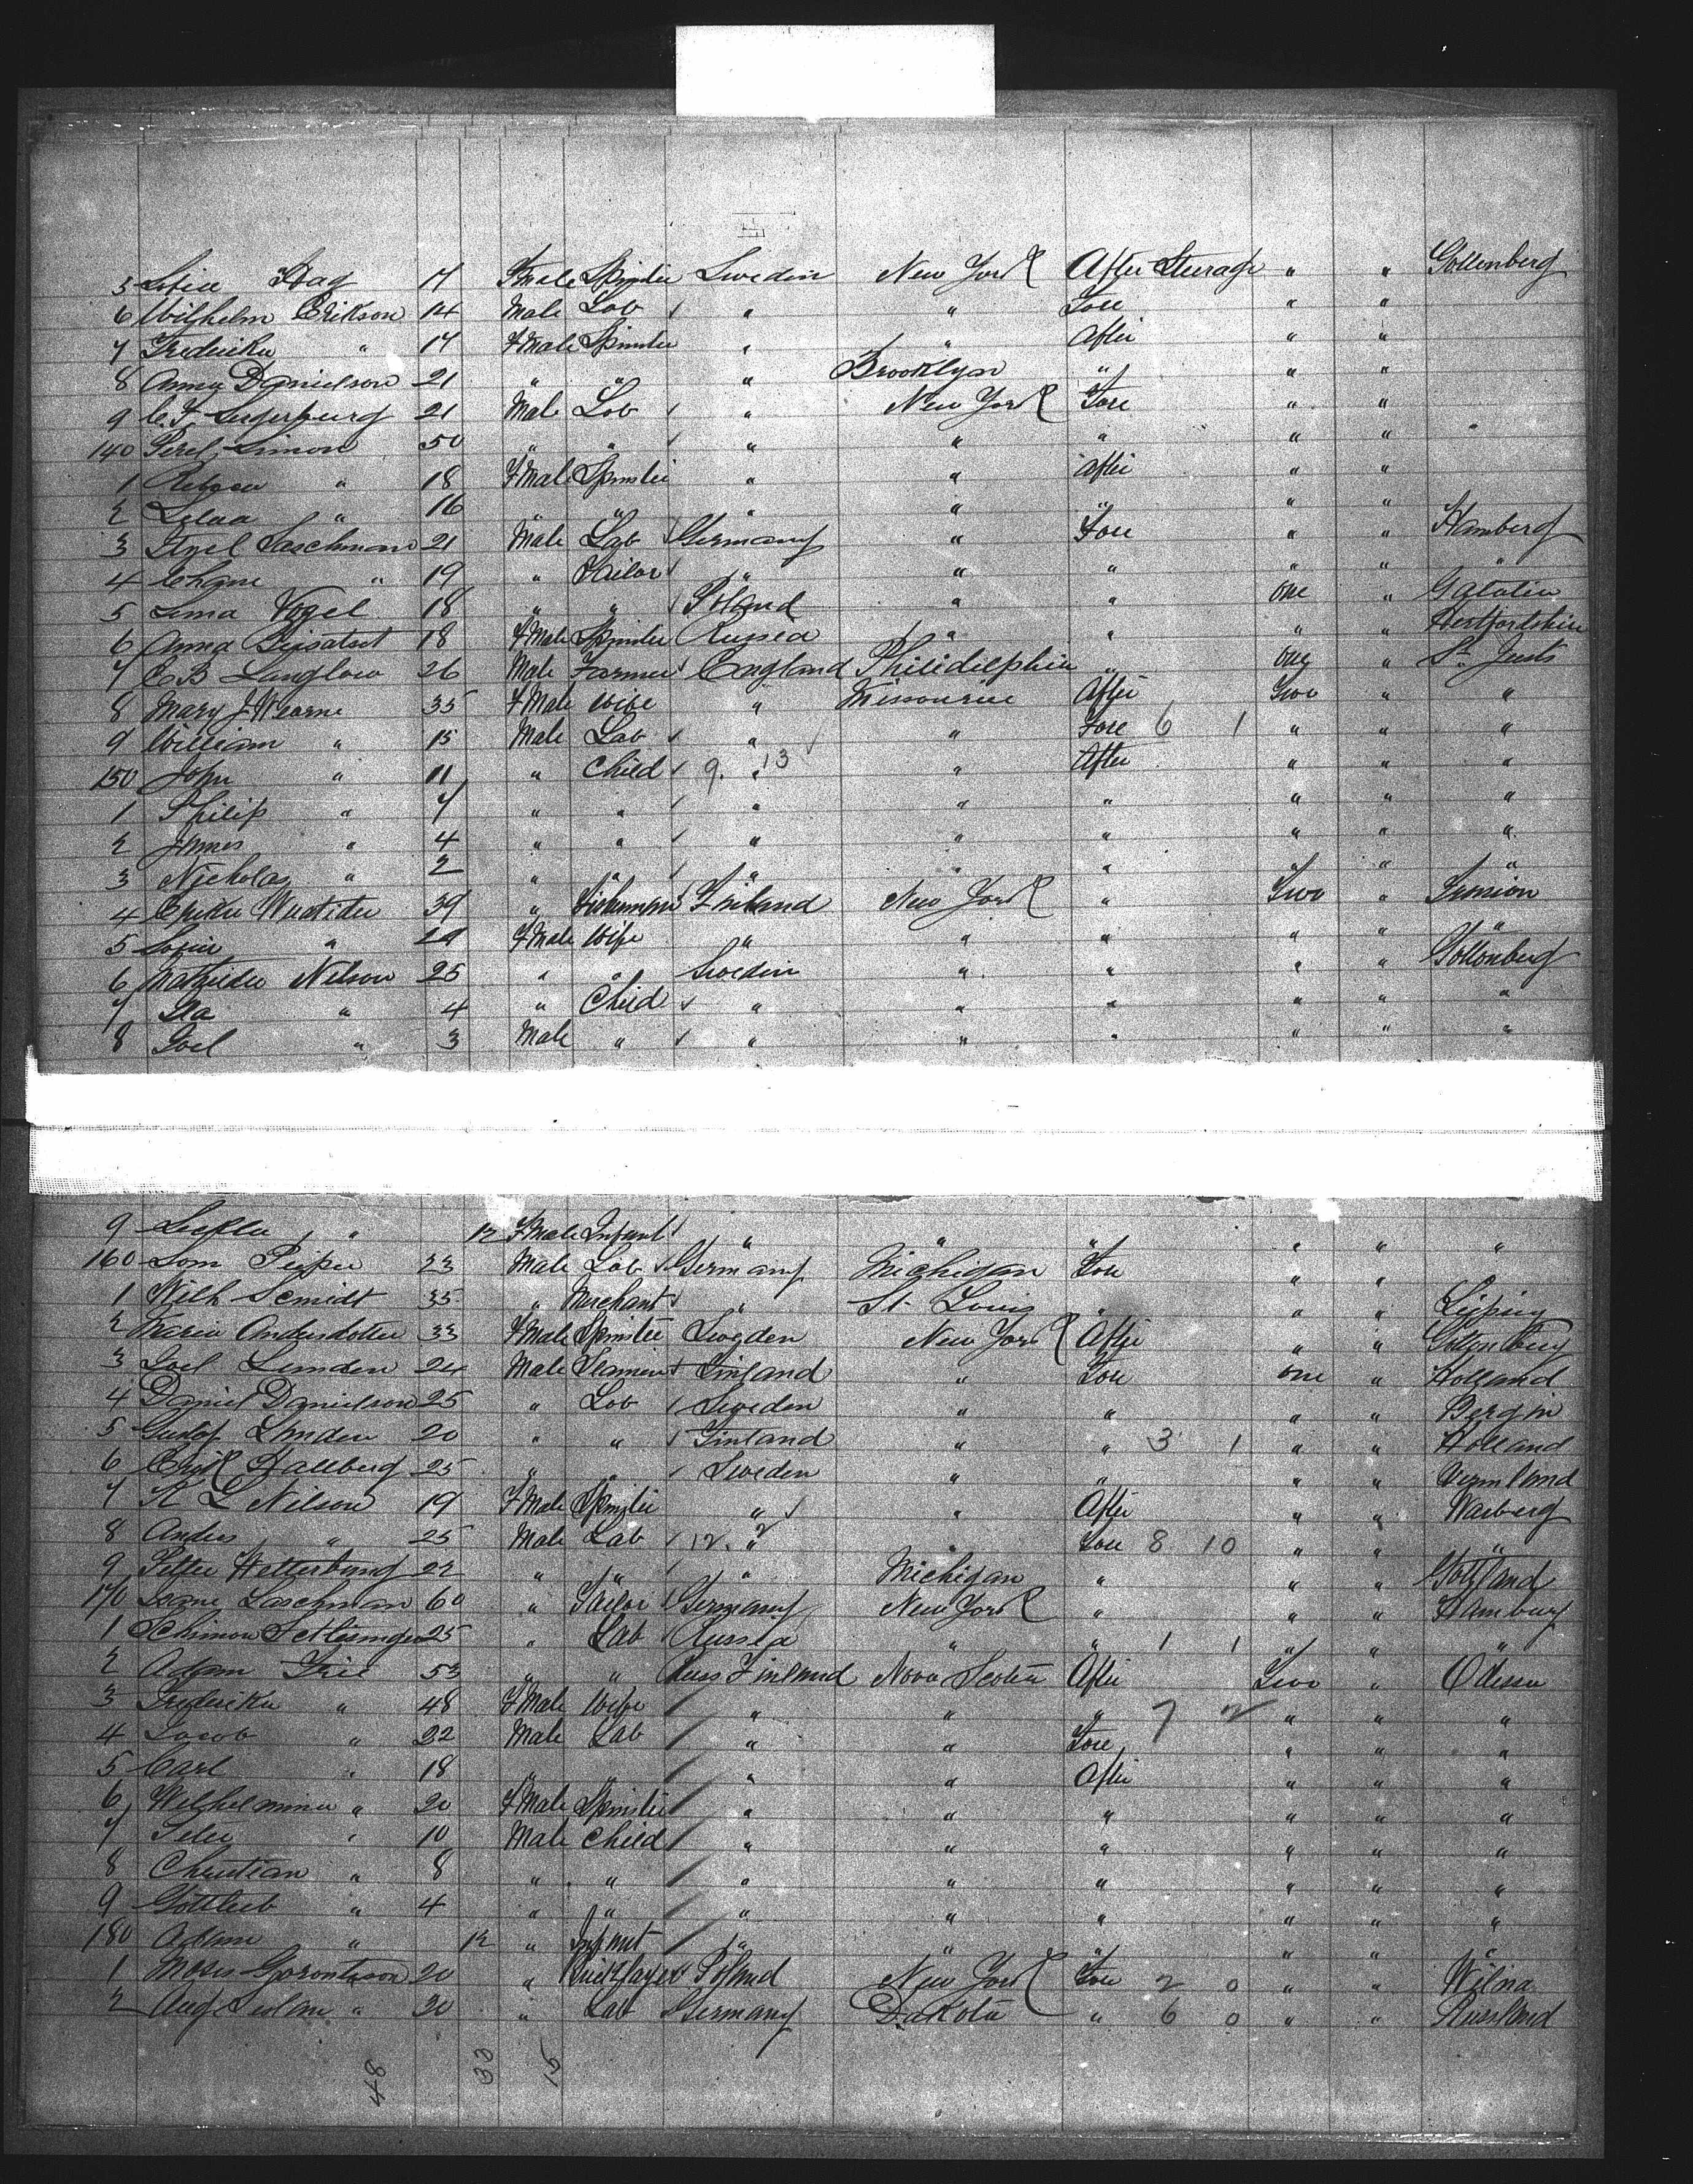 5 Sofia Hag 17 Fmale Spinster Sweden New York After Steerage " " Gottenberg
6 Wilhelm Erikson 14 Male Lab " " Fore " "
7 Frederika " 17 Fmale Spinster " " After " "
8 Anna Danielson 21 " " " Brooklyn " " "
9 C. F. 21 Male Lab " New York Fore " "
140 Perel Simon 50 " " " " " " "
1 Rebeca " 18 Fmale Spinster " " After " "
2 " 16 " " " " " " "
3 Laschman 21 Male Lab Germany " Fore " " Hamberg
4 " 19 " Tailor " " " " " "
5 Lima Vogel 18 " " Poland " " one " Gatatin
6 Anna 18 Fmale Spinster Russia " " " " Hertfordshire
7 E B Langlow 26 Male Farmer England Philidelphia " one " St Justs
8 Mary J Wearne 35 Fmale Wife " Missourie After Two " "
9 William " 15 Male Lab " " Fore 6 1 " " "
150 John " 11 " Child 9. " 13 " After " " "
1 Philip " 7 " " " " " " " "
2 James " 4 " " " " " " " "
3 Nicholas " 2 " " " " " " "
4 39 " Fisherman Finland New York " Two "
5 Sofia " 29 Fmale Wife " " " " " "
6 Nelson 25 " " Sweden " " " " Gottonberg
7 " 4 " Child " " " " " "
8 Joel " 3 Male " " " " " " "
9 " 12 Fmale Infant " " " " " "
160 23 Male Lab Germany Michigan Fore " " "
1 Wilh Scmidt 35 " Merchant " St. Louis " " " Leipzig
2 Maria Andersdotter 33 Fmale Spinster Sweden New York After " " Gottenburg
3 Joel Linden 24 Male Seaman Finland " Fore one " Holland
4 Daniel Danielson 25 " Lab Sweden " " " " Bergin
5 Gustof Linden 20 " " Finland " " 3 1 " " Holland
6 Erik Dallberg 25 " " Sweden " " " " Vermland
7 K L Nilson 19 Fmale Spinster " " After " " Warberg
8 Anders " 25 Male Lab 12. " 2 " Fore 8 10 " " "
9 Petter Wetterburg 22 " " " Michigan " " " Gottland
170 Isaac Laschman 60 " Tailor Germany New York " " " Hamburg
1 Schimon 25 " Lab Russia " " 1 1 " " "
2 Adam Frie 53 " " Russ Finland Nova Scotia After Two " Odessa
3 Frederika " 48 Fmale Wife " " " 7 2 " " "
4 Jacob " 22 Male Lab " " Fore " " "
5 Carl " 18 " " " " After " " "
6 Wilhelmina " 20 Fmale Spinster " " " " " "
7 Peter " 10 Male Child " " " " " "
8 Christian " 8 " " " " " " " "
9 Gottlieb " 4 " " " " " " " "
180 Adam " 12 " Infant " " " " " "
1 Moses 20 " Bricklayer Poland New York Fore 2 0 " " Wilna
2 Aug " 20 " Lab Germany Dakota " 6 0 " " Russland
48 33 15